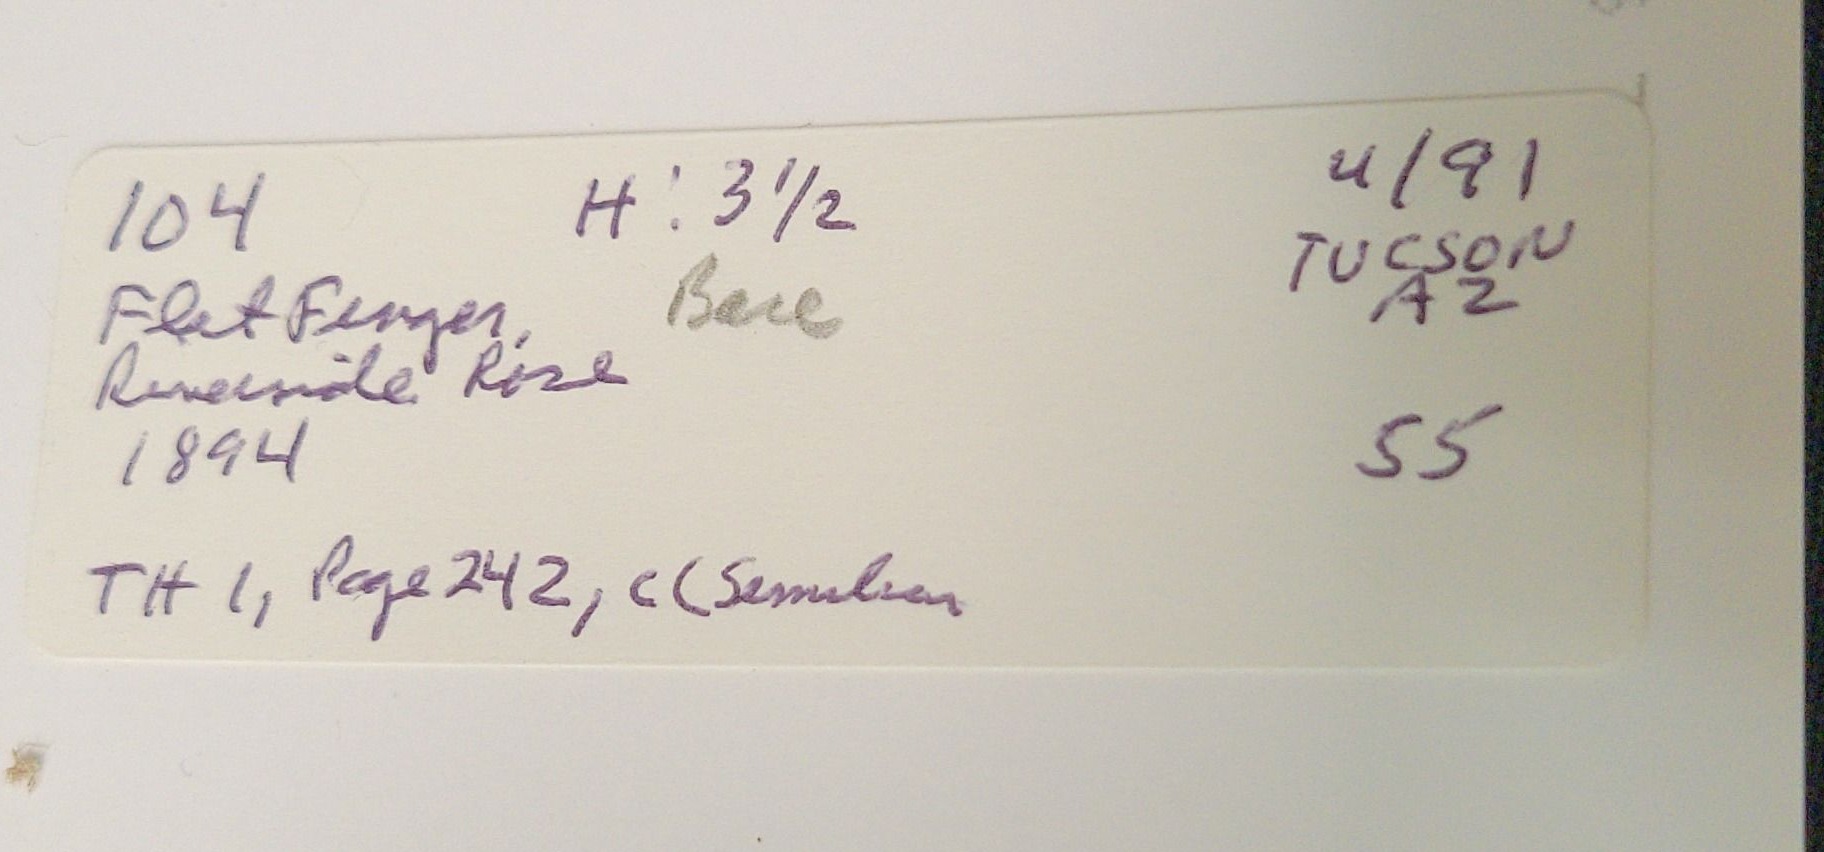 104 H: 3 1/2 4/91
TUCSON
AZ
Flat Finger, Base
Riverside Rose
1894
55
TH 1, Page 242, c (Similar